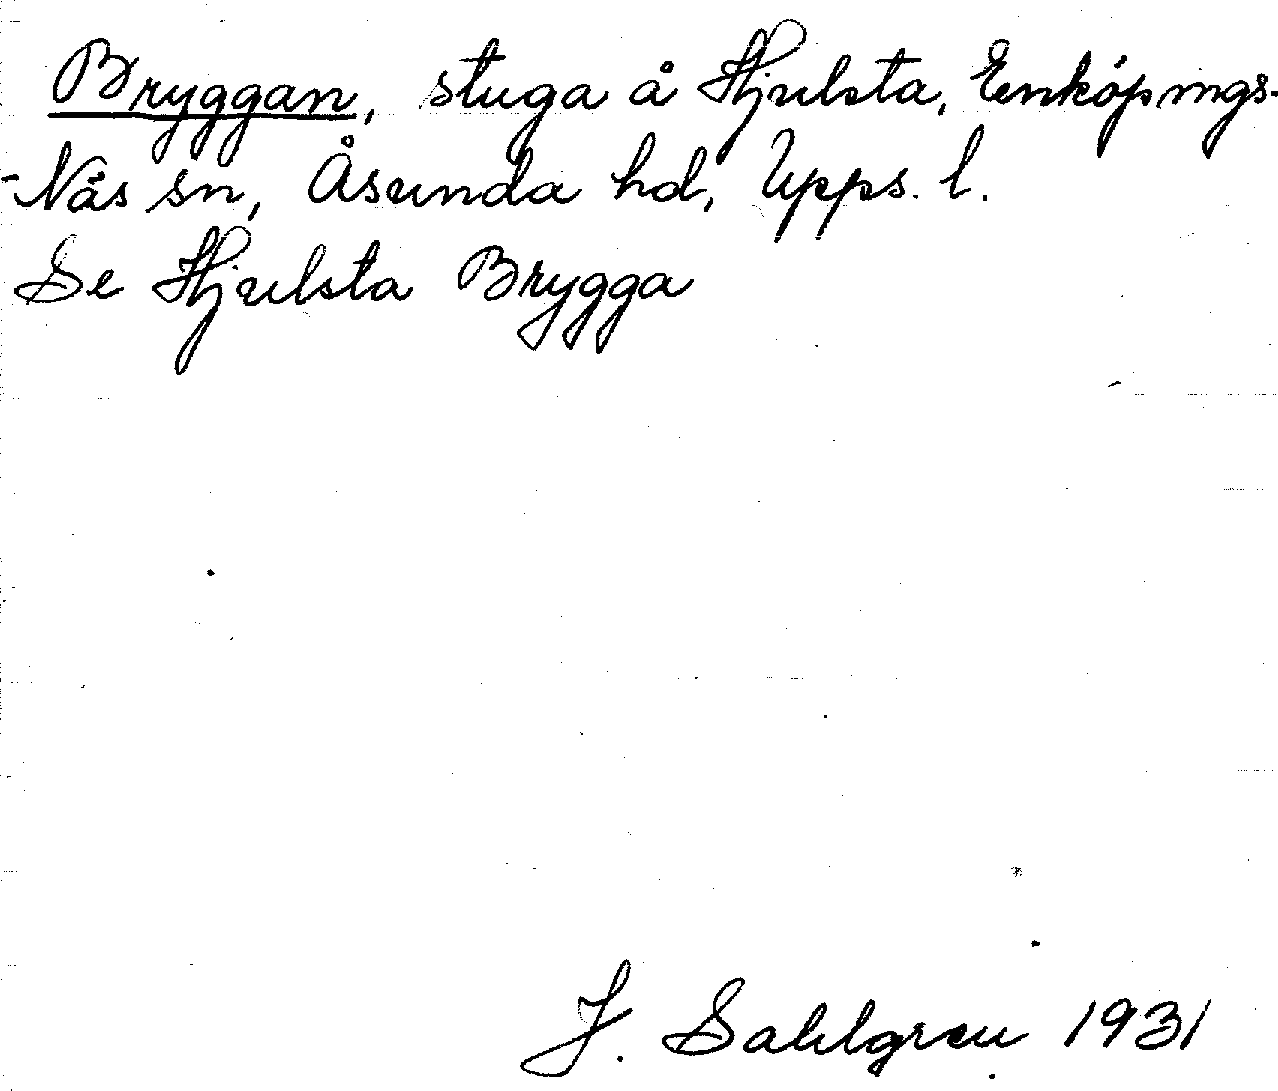 Bryggan, stuga å Hjulsta, Enköpings-
-Näs sn, Åsunda hd, Upps. l.
Se Hjulsta Brygga
J. Sahlgren 1931